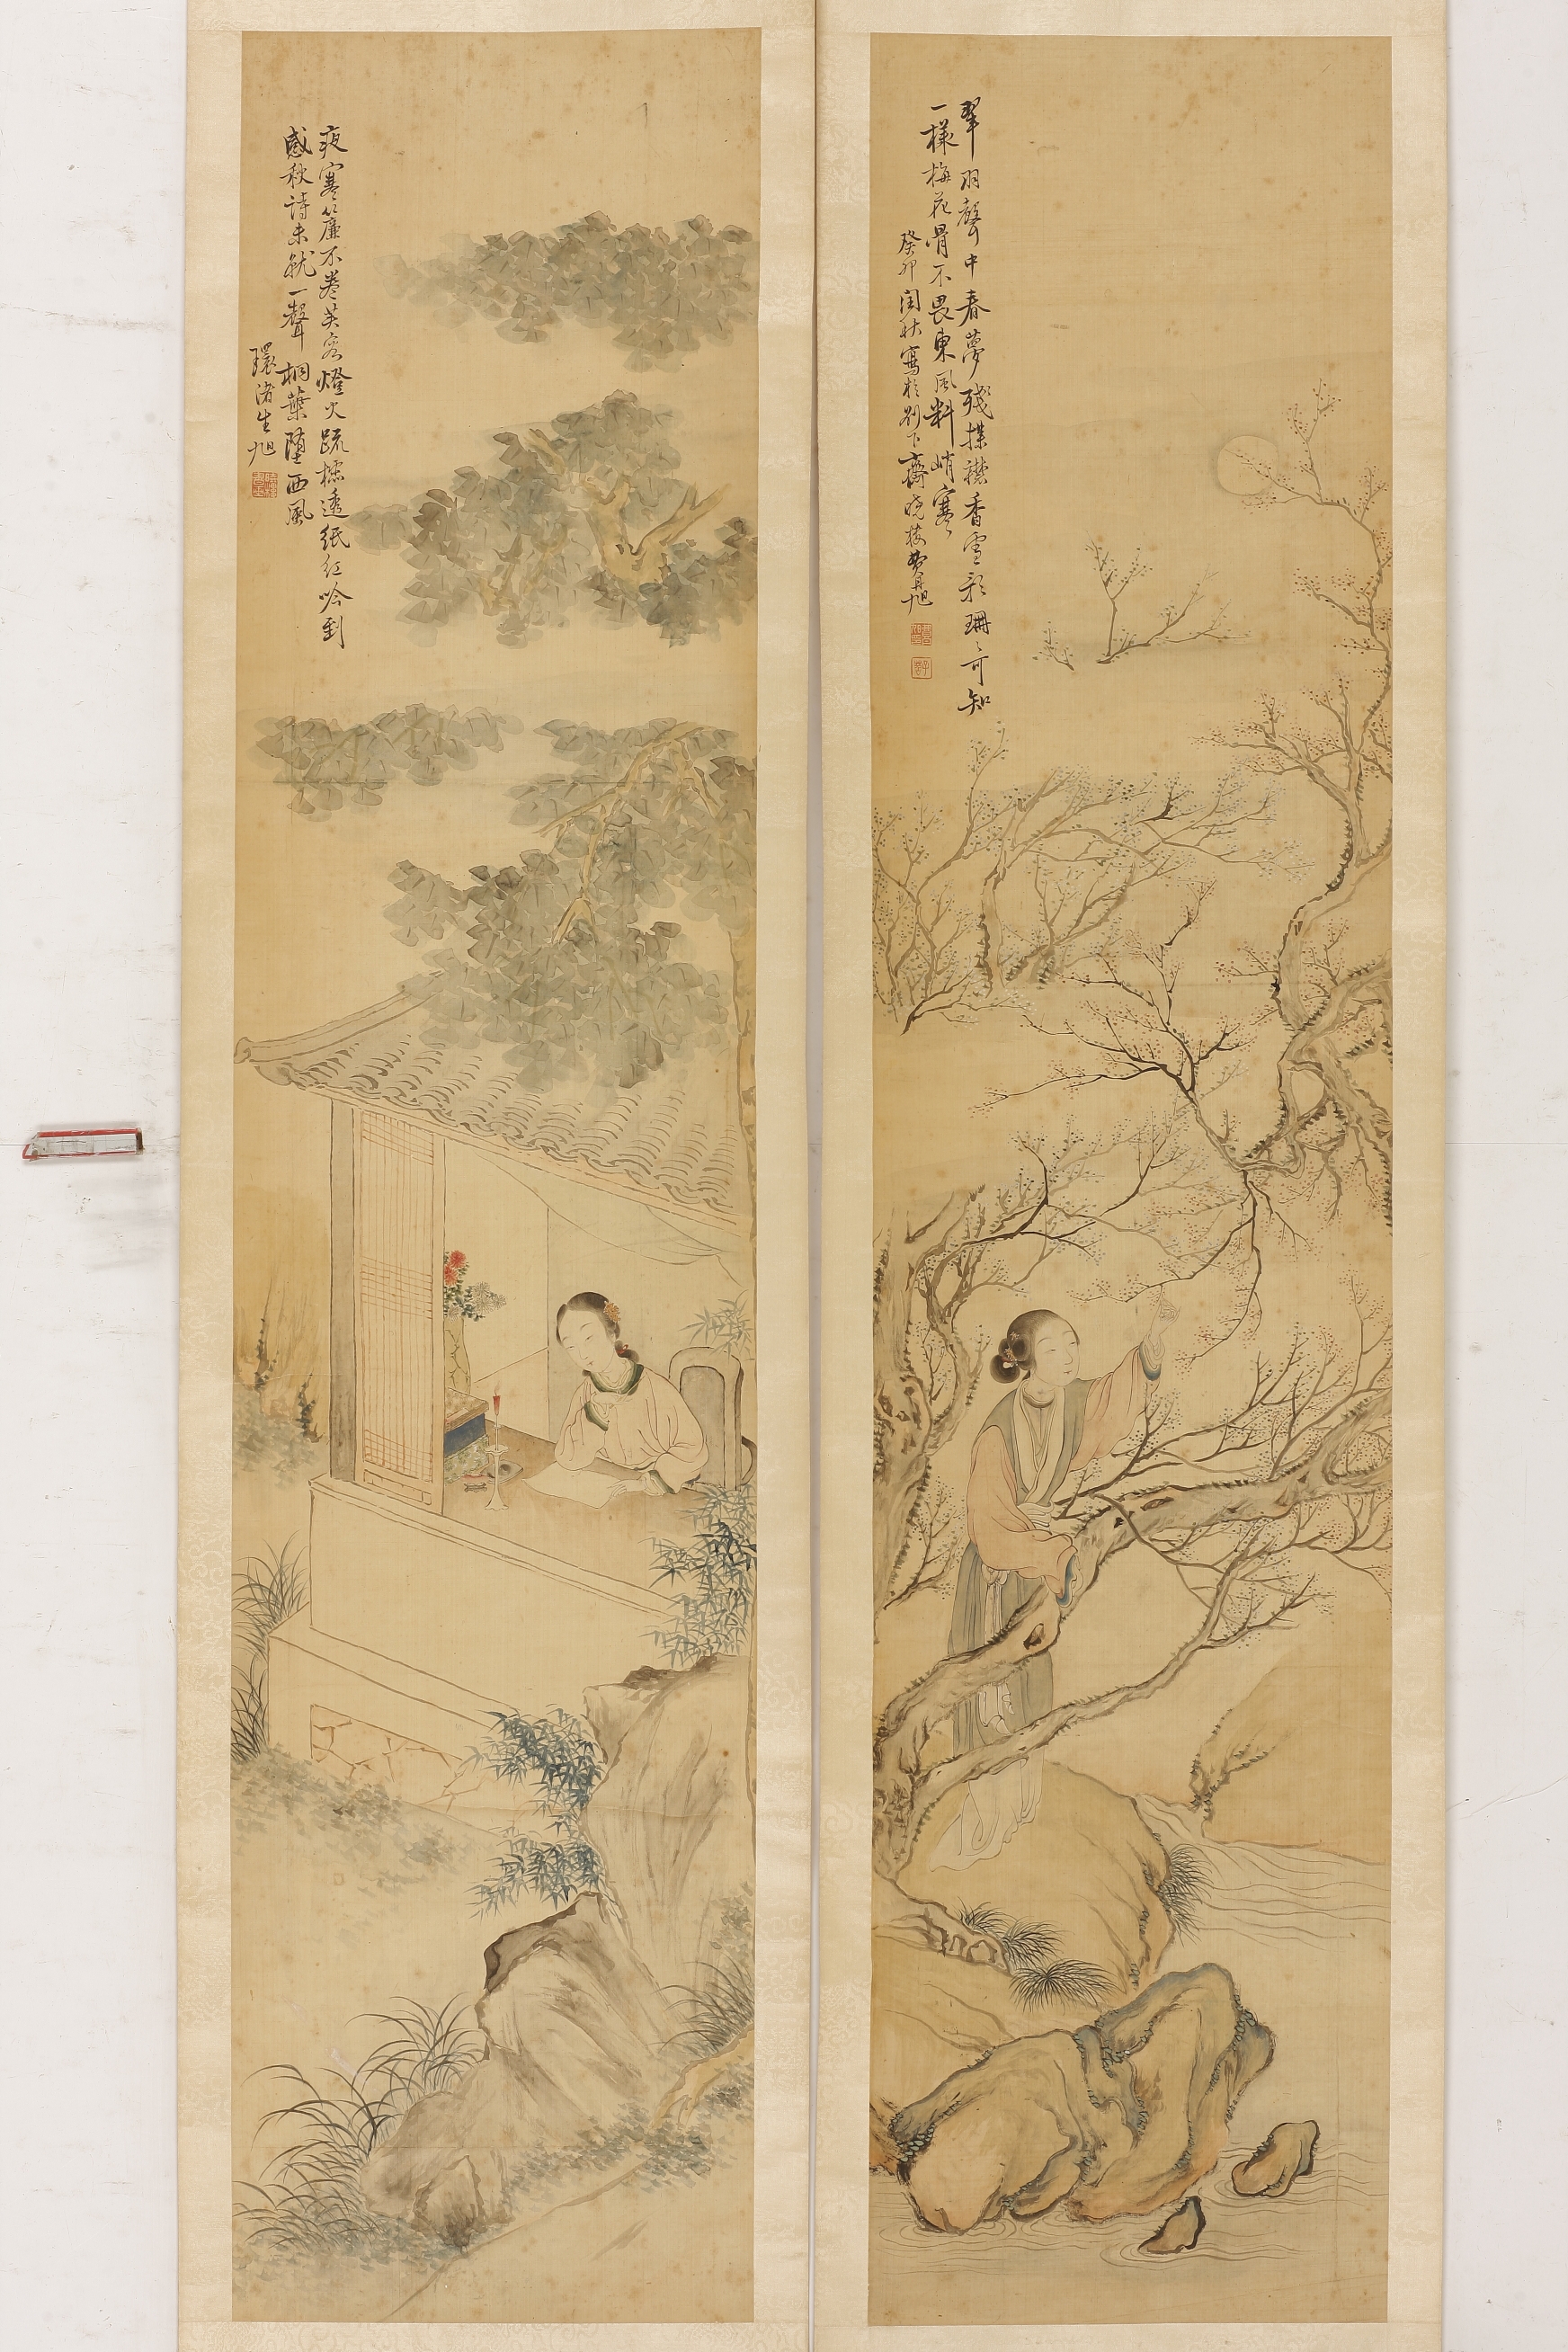 翠羽聲中春夢殘撲襟香雪影珊〻可知
一樣梅花骨不畏東風料峭寒
癸卯閏秋寫於別下齋曉樓費丹旭
夜寒簾不卷芙蓉燈火疏櫺透紙紅吟到
感秋詩未就一聲桐葉墮西風
環渚生旭